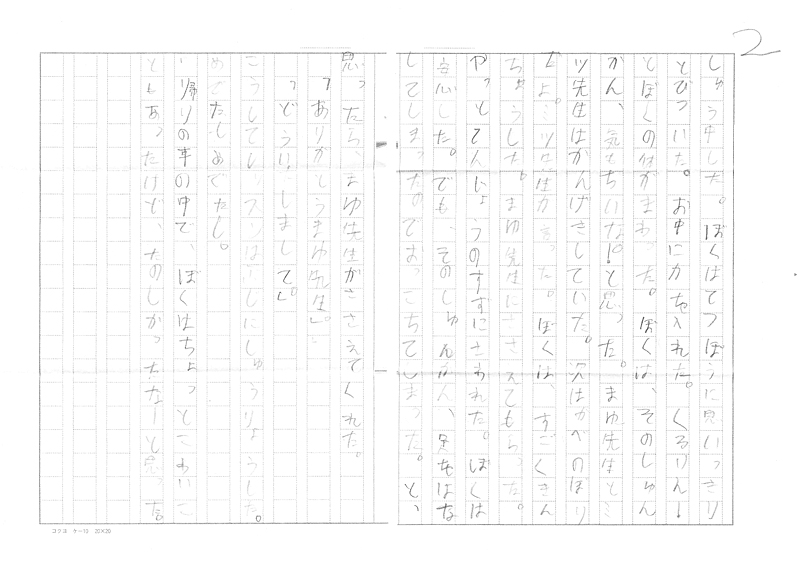 2
しゅう中した。ぼくはてつぼうに思いっきり
とびついた。お中に力を入れた。くるりん!
とぼくの体がまわった。ぼくは、そのしゅん
かん、気もちいな!と思った。まゆ先生とミ
ツ先生はかんげきしていた。次はかべのぼり
だよ。ミツ先生が言った。ぼくは、すごくきん
ちょうした。まゆ先生にささえてもらった。
やっとてんじょうのすずにさわれた。ぼくは
安心した。でも、そのしゅんかん、足をはな
してしまったのでおっこちてしまった。と、
思ったら、まゆ先生がささえてくれた。
「ありがとうまゆ先生」。
「どういたしまして」。
こうしてレッスンはぶじにしゅうりょうした。
めでたしめでたし。
帰りの車の中で、ぼくはちょっとこわいこ
ともあったけど、たのしかったなーと思った。
コクヨ ケー10 20×20